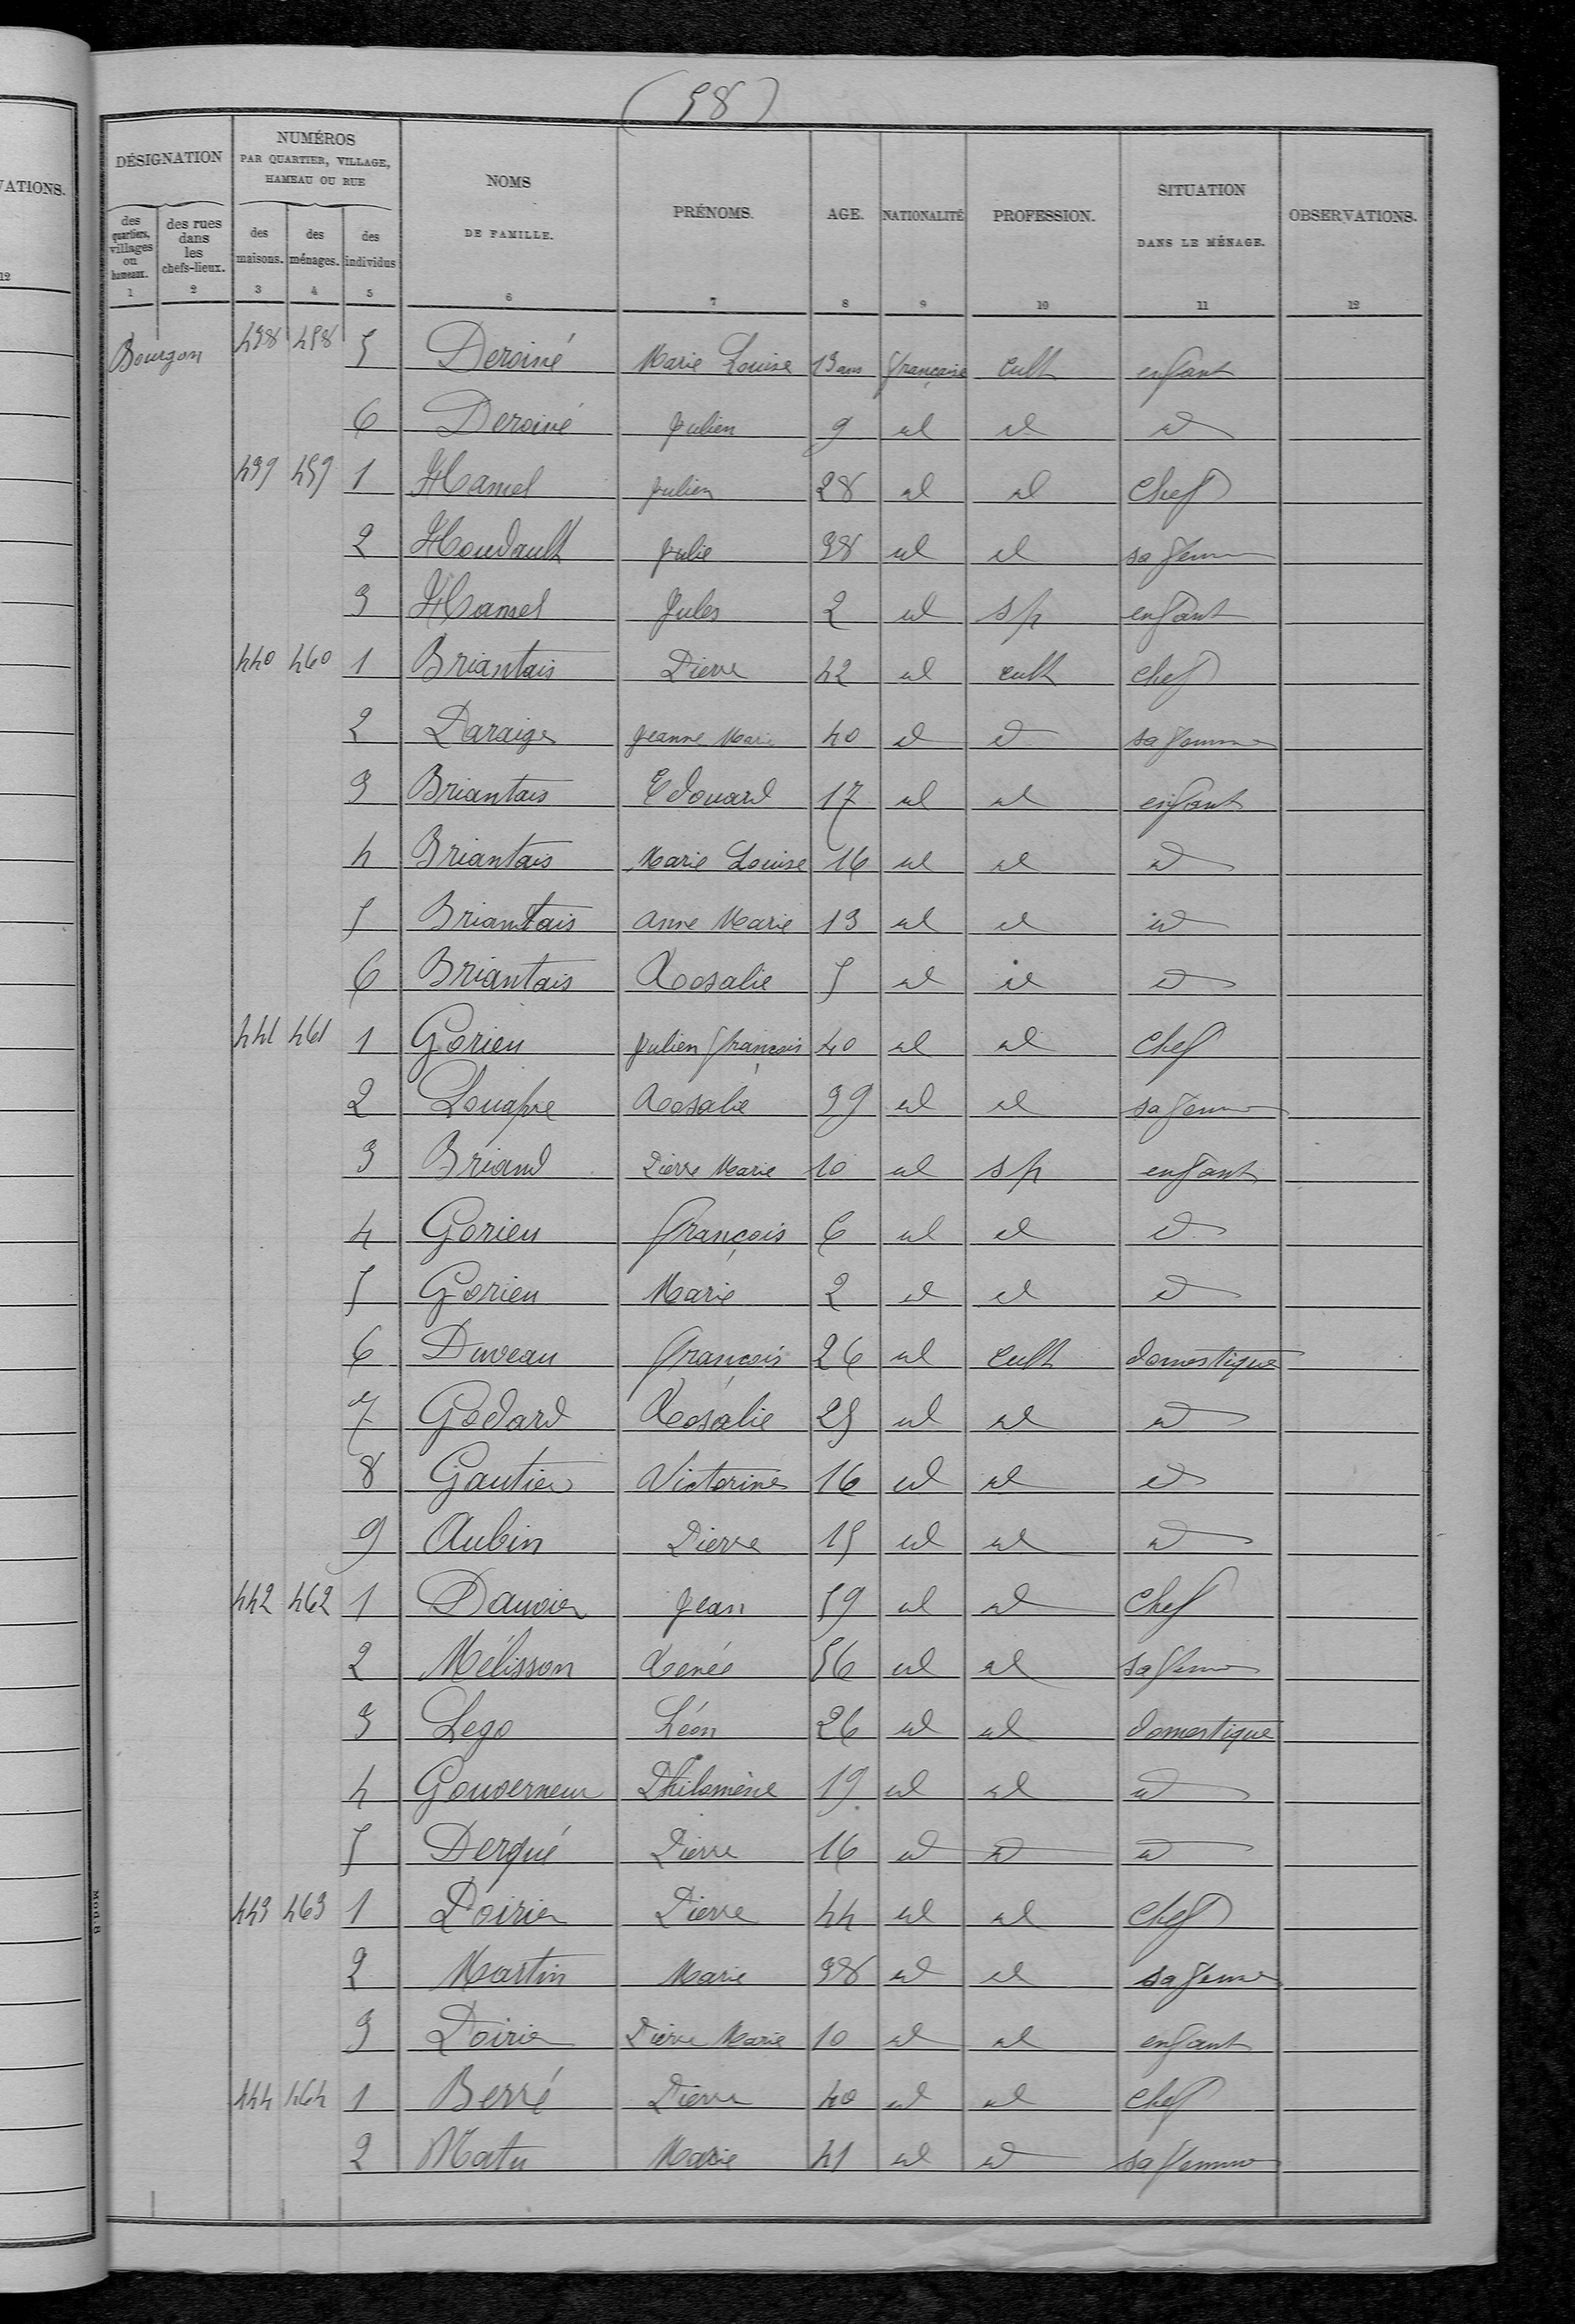 (58)
VATIONS.
12
DÉSIGNATION
NUMÉROS
PAR QUARTIER, VILLAGE,
HAMEAU OU RUE
NOMS
DE FAMILLE.
PRÉNOMS.
AGE.
NATIONALITÉ
PROFESSION.
SITUATION
DANS LE MÉNAGE.
OBSERVATIONS.
des quartiers, villages ou hameaux.
des rues dans les chefs-lieux.
des maisons.
des ménages.
des individus
1 2 3 4 5 6 7 8 9 10 11 12
Bourgon 438 458 5 Deroiné Marie Louise 13 ans française cult enfant
6 Deroiné Julien 9 id id id
439 459 1 Hamel Julien 28 id id Chef
2 Houdault Julie 38 id id sa femme
3 Hamel Jules 2 id sp enfant
440 460 1 Briantais Pierre 42 id cult chef
2 Paraige Jeanne Marie 40 id id sa femme
3 Briantais Edouard 17 id id enfant
4 Briantais Marie Louise 16 id id id
5 Briantais Anne Marie 13 id id id
6 Briantais Rosalie 5 id id id
441 461 1 Gorieu Julien François 40 id id Chef
2 Louapre Rosalie 39 id id sa femme
3 Briand Pierre Marie 10 id sp enfant
4 Gorieu François 6 id id id
5 Gorieu Marie 2 id id id
6 Duveau François 26 id Cult domestique
7 Godard Rosalie 25 id id id
8 Gautier Victorine 16 id id id
9 Aubin Pierre 15 id id id
442 462 1 Dauvier Jean 59 id id Chef
2 Mélisson Renée 56 id id sa femme
3 Lego Léon 26 id id domestique
4 Gouverneur Philomène 19 id id id
5 Derqué Pierre 16 id id id
443 463 1 Poirier Pierre 44 id id Chef
2 Martin Marie 38 id id sa femme
3 Poirier Pierre Marie 10 id id enfant
444 464 1 Berré Pierre 40 id id Chef
2 Matu Marie 41 id id sa femme
Mod. B